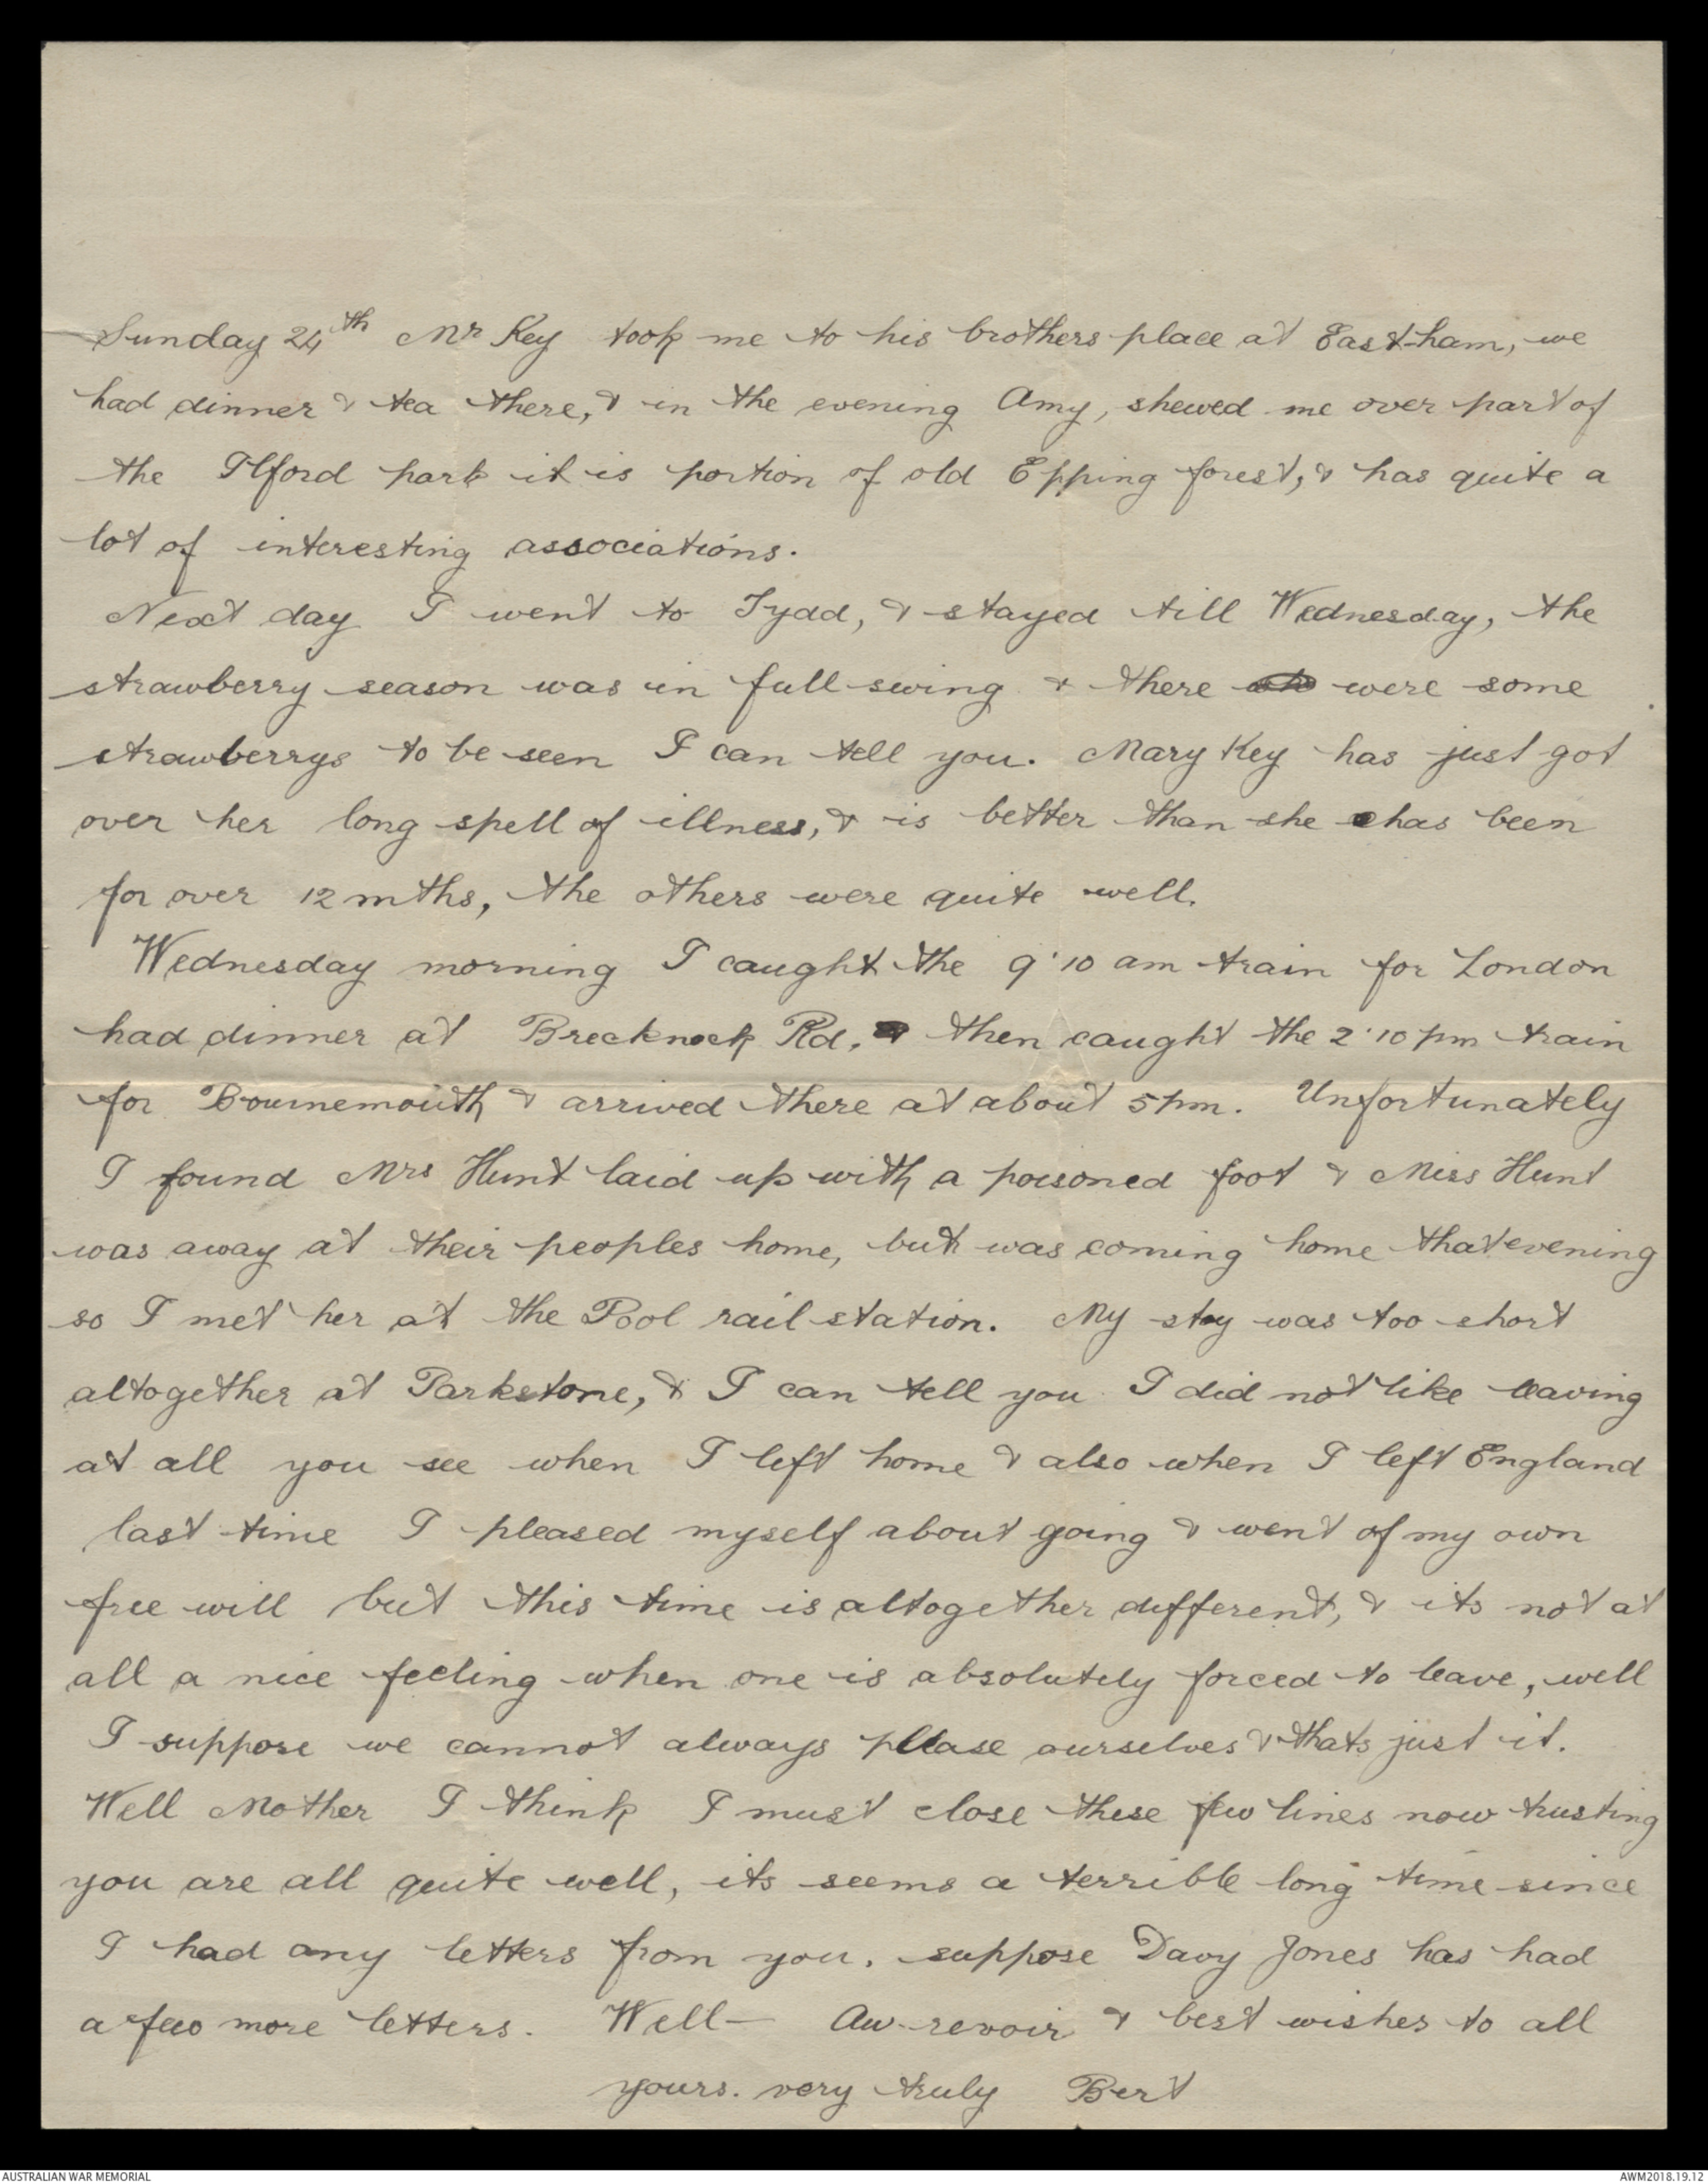 Sunday 24th Mr Key took me to his brothers place at East-ham, we
had dinner & tea there, & in the evening Amy, shewed me over part of
the Ilford park it is portion of old Epping forest, & has quite a
lot of interesting associations.
Next day I went to Tydd, & stayed till Wednesday, the
strawberry season was in full swing & there were some
strawberrys to be seen I can tell you. Mary Key has just got
over her long spell of illness, & is better than she has been
for over 12 mths, the others were quite well.
Wednesday morning I caught the 9.10 am train for London
had dinner at Brecknock Rd. & then caught the 2.10 pm train
for Bournemouth & arrived there at about 5 pm. Unfortunately
I found Mrs Hunt laid up with a poisoned foot & Miss Hunt
was away at their peoples home, but was coming home that evening
so I met her at the Pool rail station. My stay was too short
altogether at Parkstone, & I can tell you I did not like leaving
at all you see when I left home & also when I left England
last time I pleased myself about going & went of my own
free will but this time is altogether different, & its not at
all a nice feeling when one is absolutely forced to leave, well
I suppose we cannot always please ourselves & thats just it.
Well Mother I think I must close these few lines now trusting
you are all quite well, its seems a terrible long time since
I had any letters from you. suppose Davy Jones has had
a few more letters. Well— Au-revoir & best wishes to all
yours. very truly Bert
AUSTRALIAN WAR MEMORIAL
AWM2018.19.12